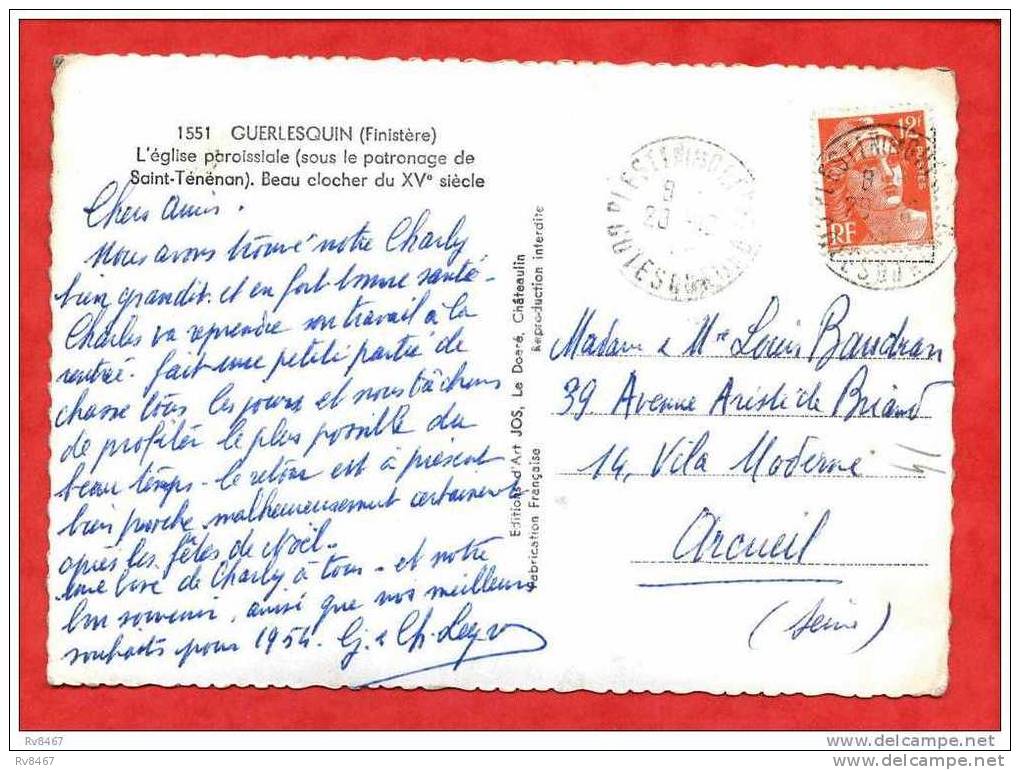 1551 GUERLESQUIN (Finistère)
L'église paroissiale (sous le patronage de
Saint-Ténénan). Beau clocher du XVe siècle
Chers amis.
Nous avons trouvé notre Charly
bien grandit. et en fort bonne santé.
Charles va reprendre son travail à la
rentrée. fait une petite partie de
chasse tous les jours et nous tâchons
de profiter le plus possible du
beau temps. le retour est à présent
bien proche malheureusement certainement
après les fêtes de Noël.
une bise de Charly à tous. et notre
bon souvenir, ainsi que nos meilleurs
souhaits pour 1954. G. & Ch.
Editions d'Art JOS, Le Doaré, Châteaulin
Fabrication Française
Reproduction interdite
8
12F
POSTES
RF
8
Madame & Mr Louis Baudran
39 Avenue Aristide Briand
14, Villa Moderne
Arcueil
(Seine)
Rv8467
www.delcampe.net
Rv8467
www.delcampe.net